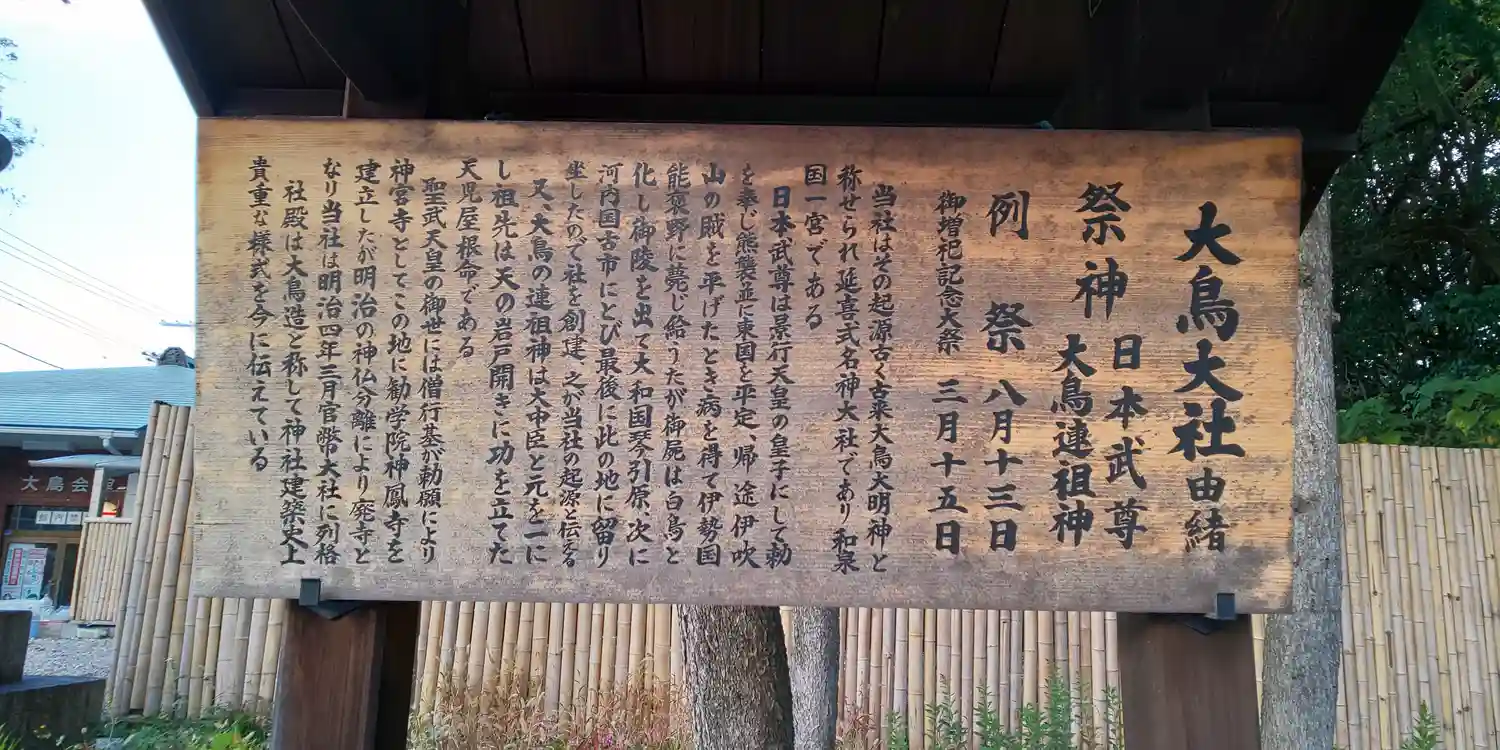 大鳥大社由緒
祭神 日本武尊
大鳥連祖神
例祭 八月十三日
御増祀記念大祭 三月十五日
当社はその起源古く古来大鳥大明神と
称せられ延喜式名神大社であり和泉
国一宮である
日本武尊は景行天皇の皇子にして勅
を奉じ熊襲並に東国を平定、帰途伊吹
山の賊を平げたとき病を得て伊勢国
能褒野に薨じ給うたが御屍は白鳥と
化し御陵を出て大和国琴引原、次に
河内国古市にとび最後に此の地に留り
坐したので社を創建、之が当社の起源と伝える
又、大鳥の連祖神は大中臣と元を一に
し祖先は天の岩戸開きに功を立てた
天児屋根命である
聖武天皇の御世には僧行基が勅願により
神宮寺としてこの地に勧学院神鳳寺を
建立したが明治の神仏分離により廃寺と
なり当社は明治四年三月官幣大社に列格
社殿は大鳥造と称して神社建築史上
貴重な様式を今に伝えている
大鳥会館